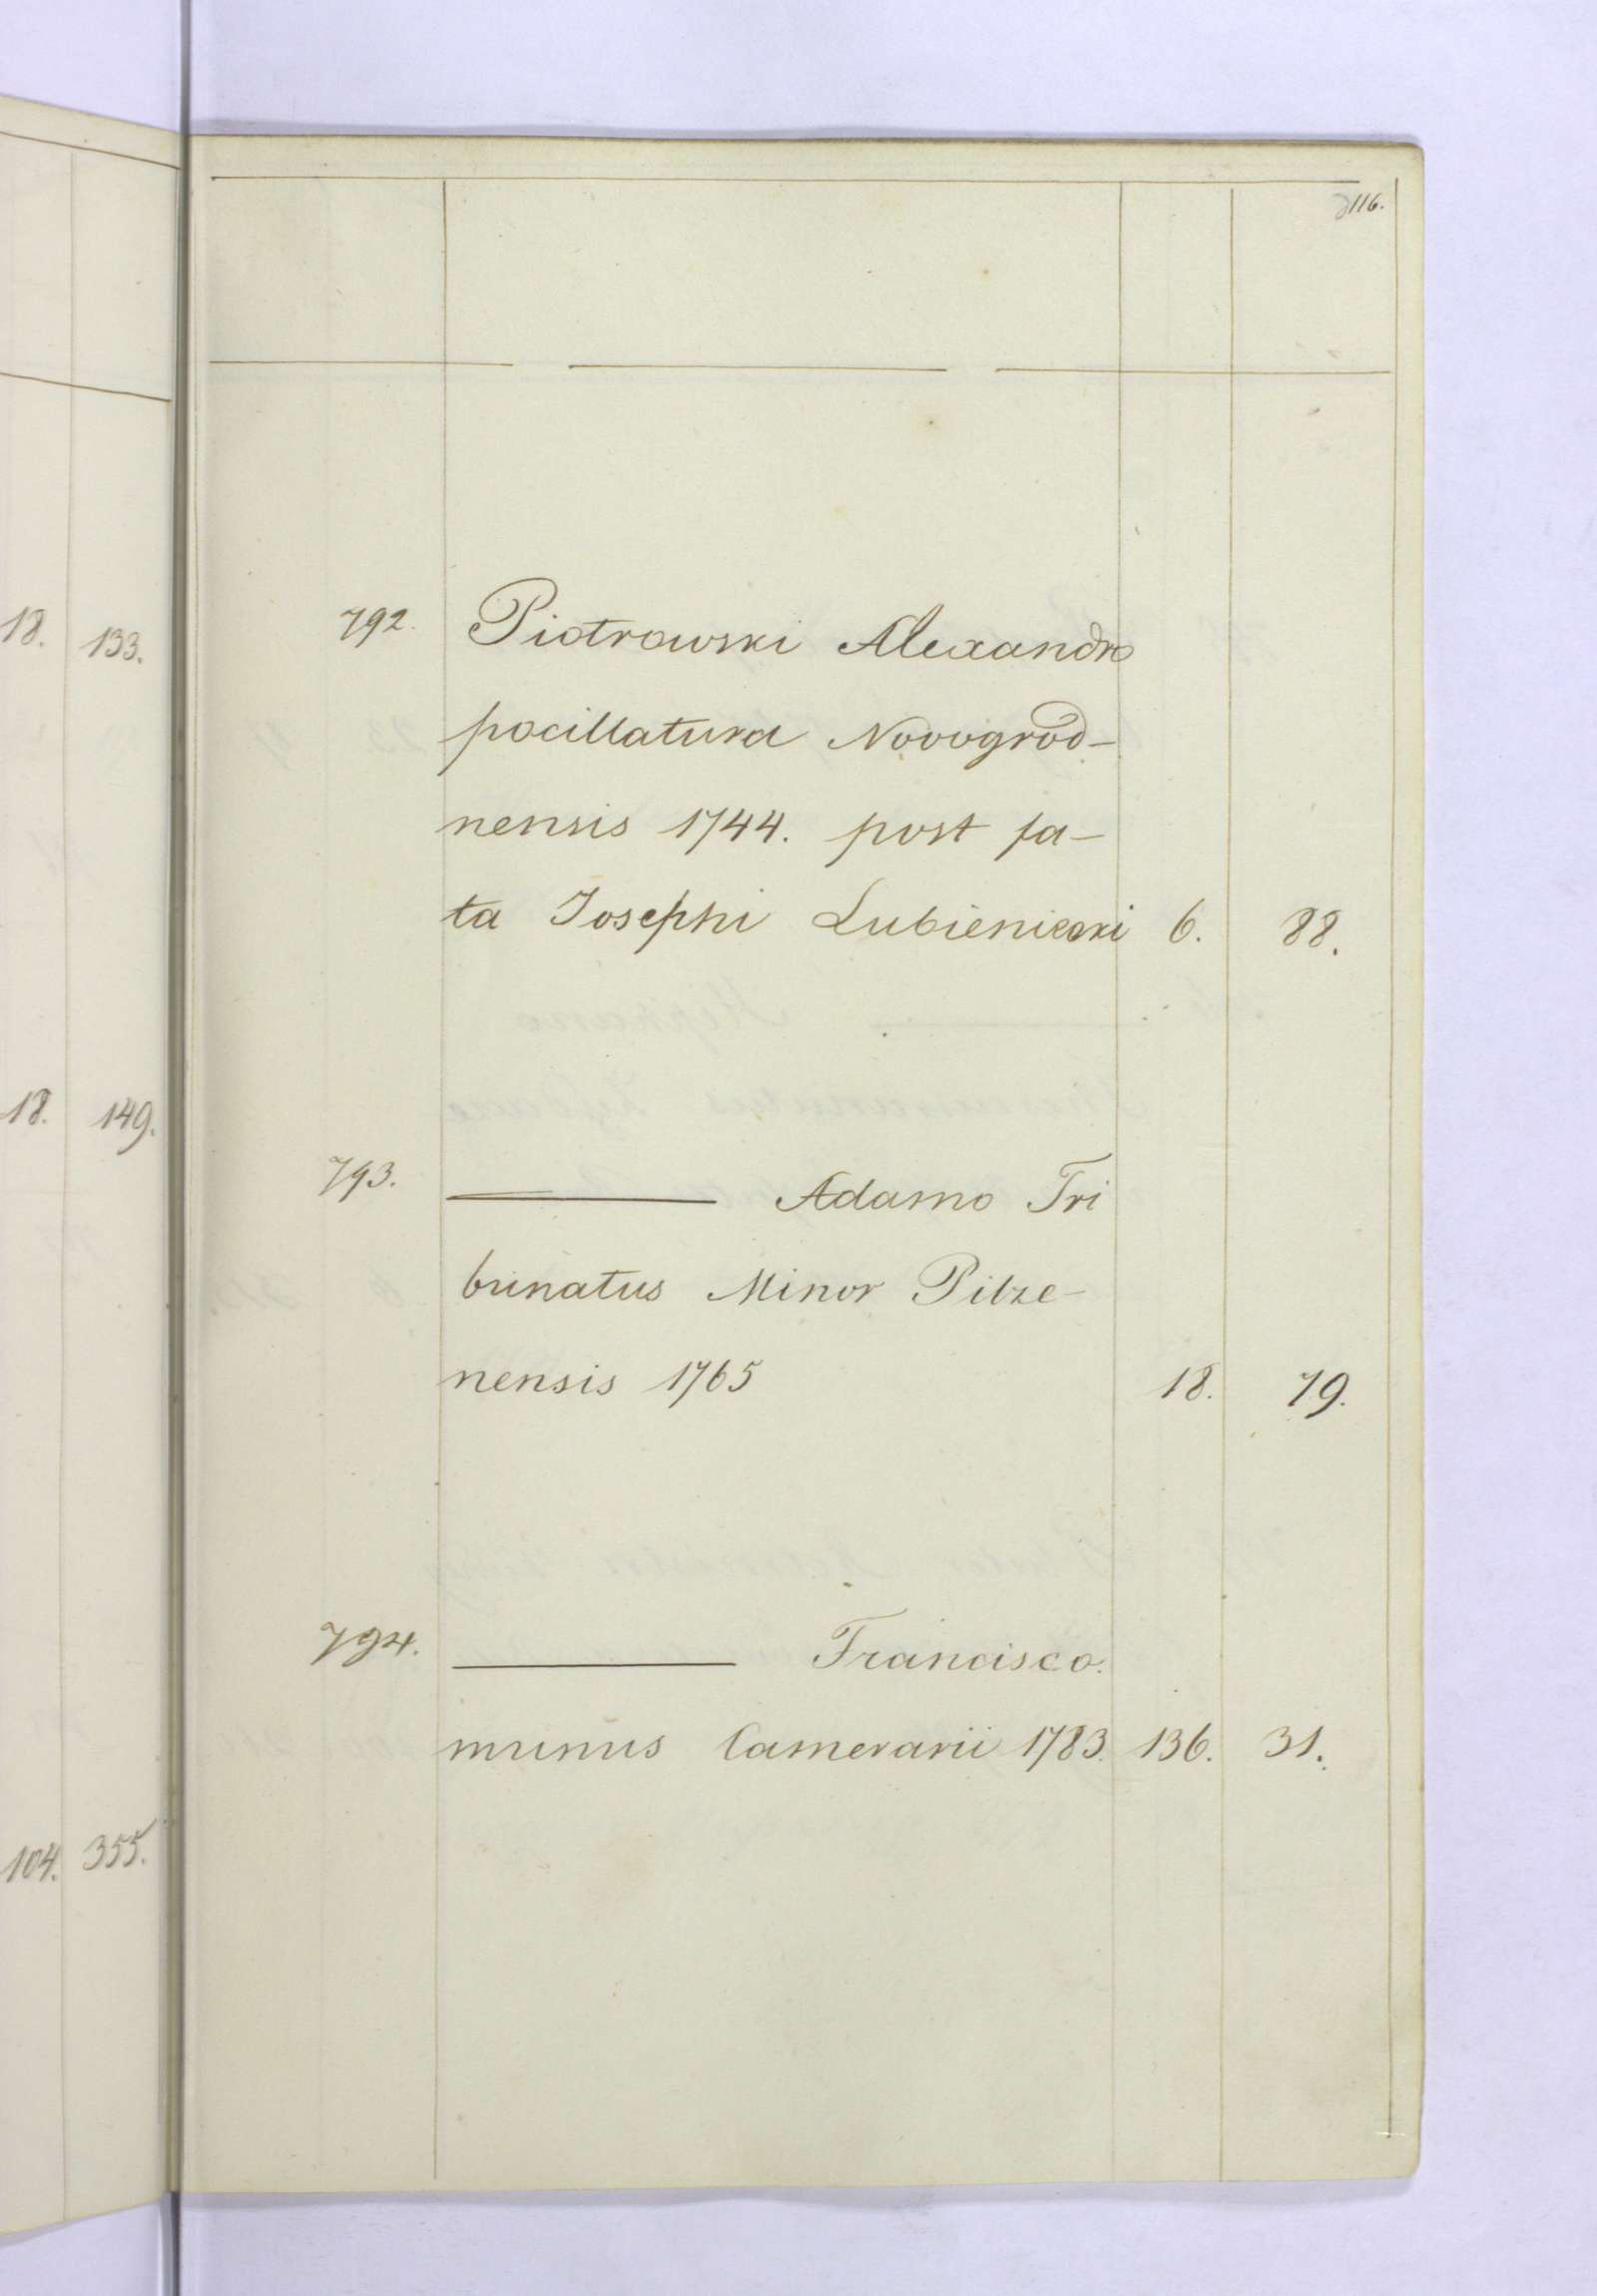 116.
18. 133.
792. Piotrowski Alexandro
pocillatura Novogrod-
nensis 1744. post fa-
ta Josephi Lubieniecki 6. 88.
18. 149.
793. ——— Adamo Tri
bunatus Minor Pilze-
nensis 1765 18. 79.
794. ——— Francisco.
munus Camerarii 1783. 136. 31.
104. 355.